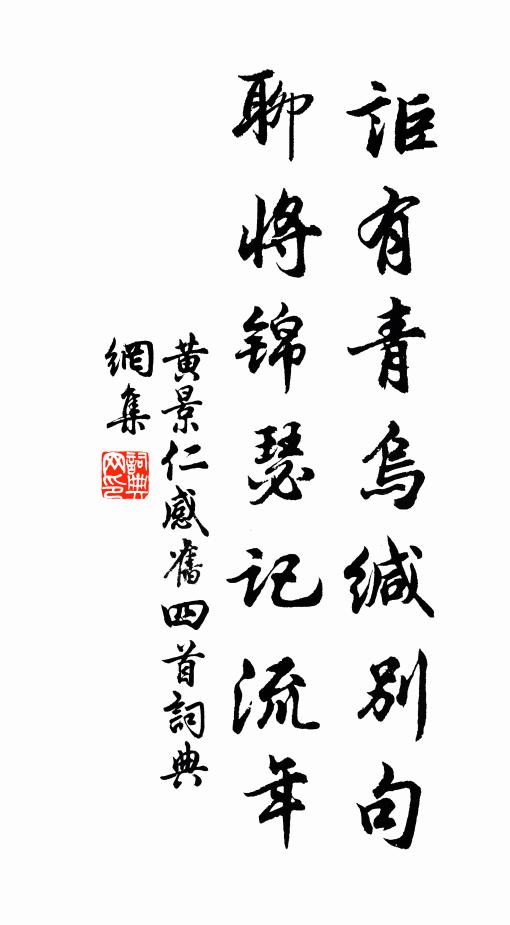 詎有青烏缄別句
聊將錦瑟記流年
黃景仁感舊四首詞典
網集
詞典網印